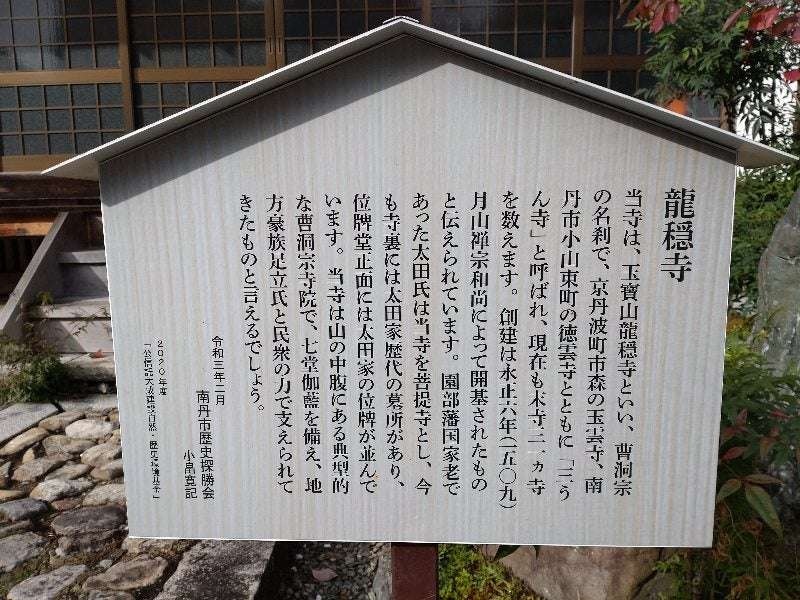 龍穏寺
当寺は、玉寶山龍穏寺といい、曹洞宗
の名刹で、京丹波町市森の玉雲寺、南
丹市小山東町の徳雲寺とともに「三う
ん寺」と呼ばれ、現在も末寺二一ヵ寺
を数えます。創建は永正六年(一五〇九)
月山禅宗和尚によって開基されたもの
と伝えられています。園部藩国家老で
あった太田氏は当寺を菩提寺とし、今
も寺裏には太田家歴代の墓所があり、
位牌堂正面には太田家の位牌が並んで
います。当寺は山の中腹にある典型的
な曹洞宗寺院で、七堂伽藍を備え、地
方豪族足立氏と民衆の力で支えられて
きたものと言えるでしょう。
令和三年二月
南丹市歴史探勝会
小畠寛記
2020年度
「公信託大成建設自然・歴史環境基金」